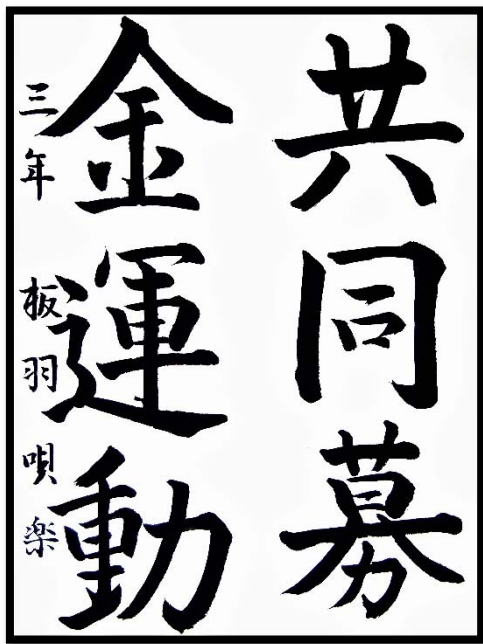 共同募
金運動
三年 板羽唄楽